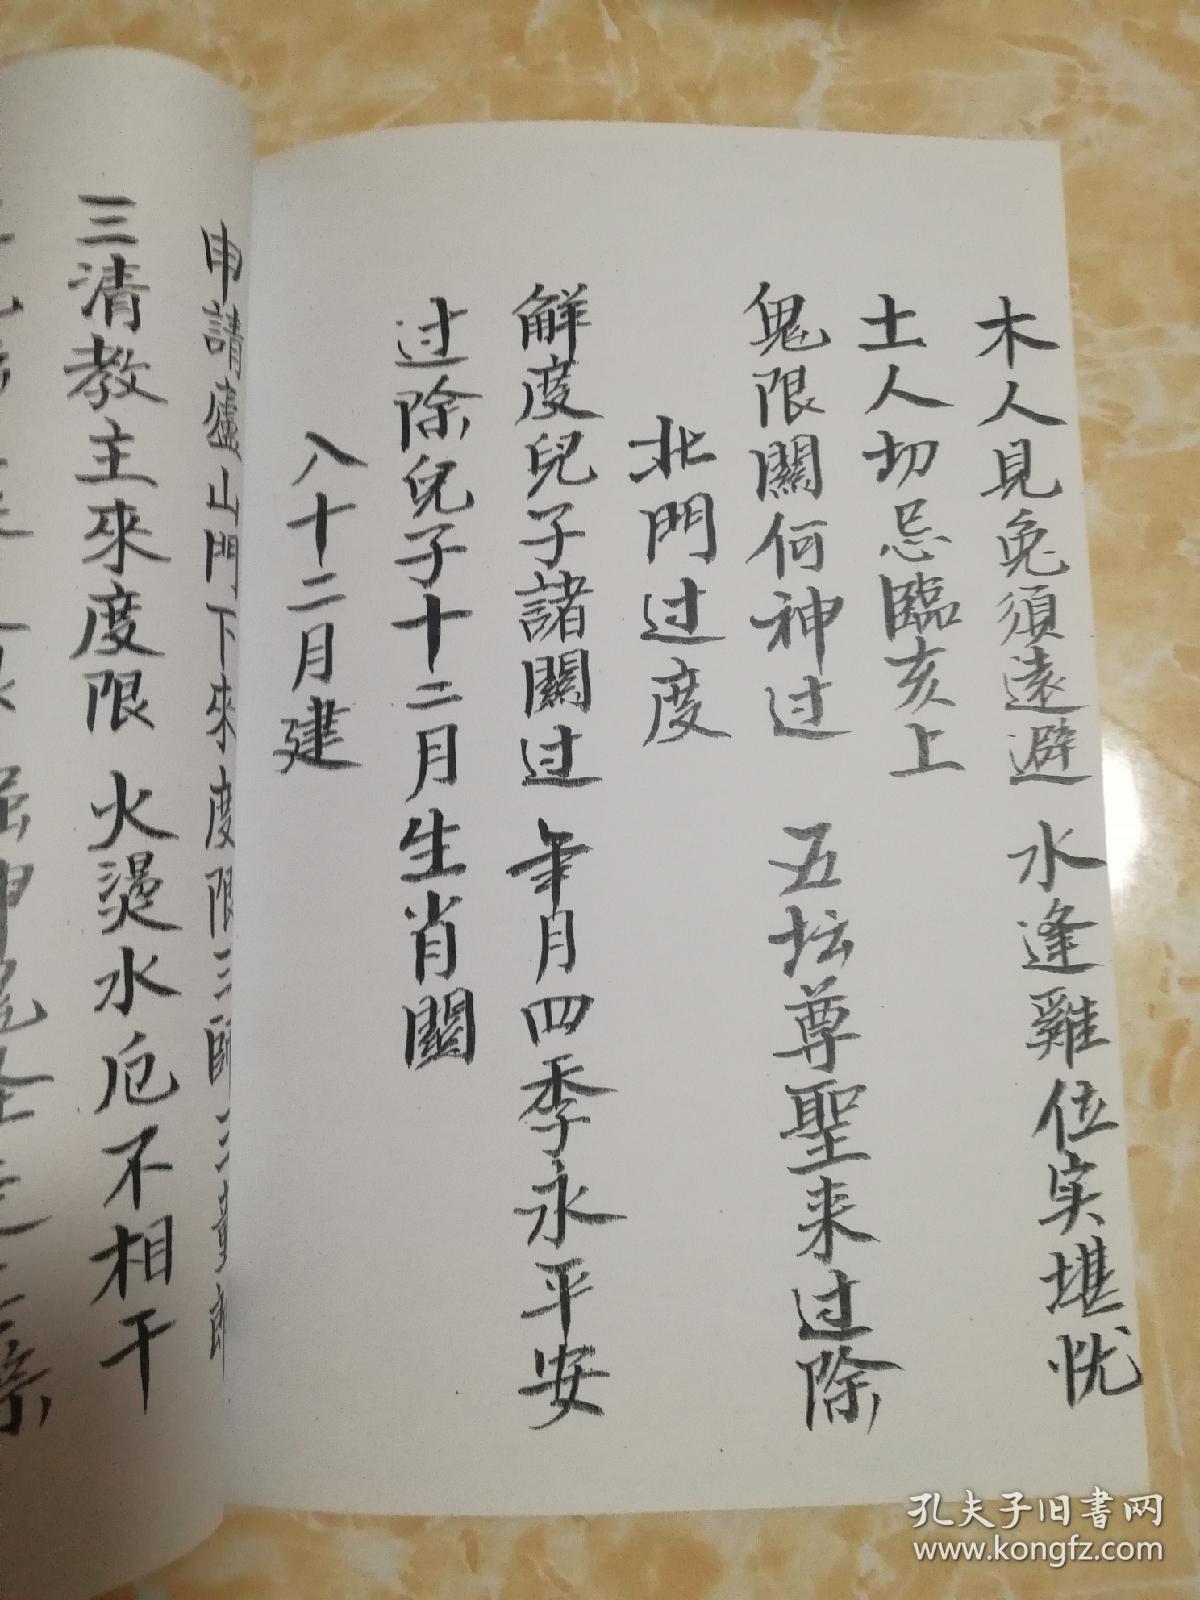 木人見兔須遠避 水逢雞位实堪忧
土人切忌臨亥上
鬼限關何神过 五坛尊聖来过除
北門过度
解度兒子諸關过 年月四季永平安
过除兒子十二月生肖關
八十二月建
申請廬山門下來度限三師三童郎
三清教主來度限 火燙水厄不相干
孔夫子旧书网
www.kongfz.com